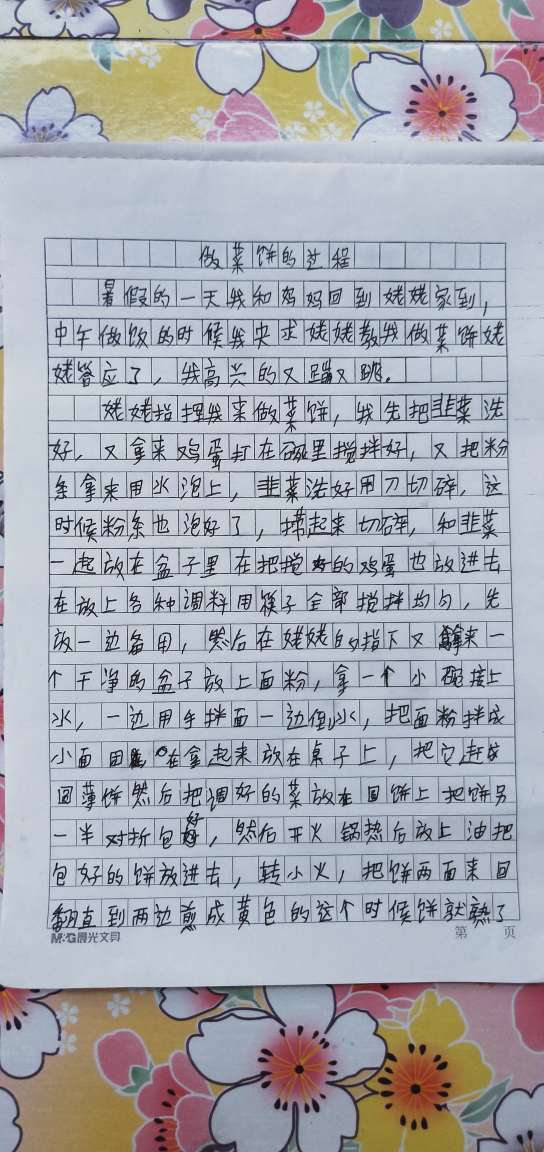 做菜饼的过程
暑假的一天我和妈妈回到姥姥家到，
中午做饭的时候我央求姥姥教我做菜饼姥
姥答应了，我高兴的又蹦又跳。
姥姥指挥我来做菜饼，我先把韭菜洗
好，又拿来鸡蛋打在碗里搅拌好，又把粉
条拿来用水泡上，韭菜洗好用刀切碎，这
时候粉条也泡好了，捞起来切碎，和韭菜
一起放在盆子里在把搅好的鸡蛋也放进去
在放上各种调料用筷子全部搅拌均匀，先
放一边备用，然后在姥姥的指下又拿来一
个干净的盆子放上面粉，拿一个小碗接上
水，一边用手拌面一边倒水，把面粉拌成
小面团 在拿起来放在桌子上，把它赶成
回薄饼然后把调好的菜放在回饼上把饼另
一半对折包好，然后开火锅热后放上油把
包好的饼放进去，转小火，把饼两面来回
翻直到两边煎成黄色的这个时候饼就熟了
M&G晨光文具 第 页